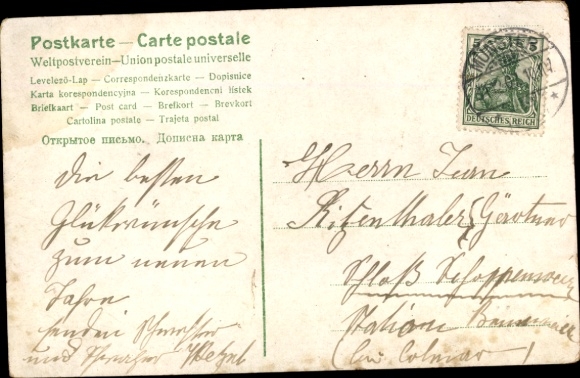 Postkarte — Carte postale
Weltpostverein — Union postale universelle
Levelező-Lap — Correspondenzkarte — Dopisnice
Karta korespondencyjna — Korespondencni lístek
Briefkaart — Post card — Brefkort — Brevkort
Cartolina postale — Trajeta postal
Открытое письмо. Дописна карта
5 5
DEUTSCHES REICH
die besten
Glükwünsche
zum neuen
Jahre
senden
und
Herrn Jean
Ritzenthaler Gärtner
Schloß Schoppenweier
Station
(bei Colmar)